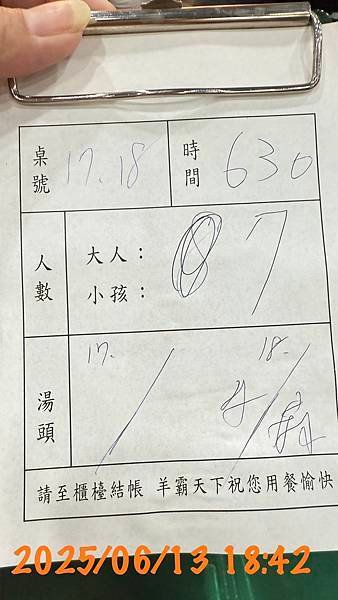 桌號 17.18 時間 630
人數 大人：
小孩： 7
湯頭 17. 18.
請至櫃檯結帳 羊霸天下祝您用餐愉快
2025/06/13 18:42